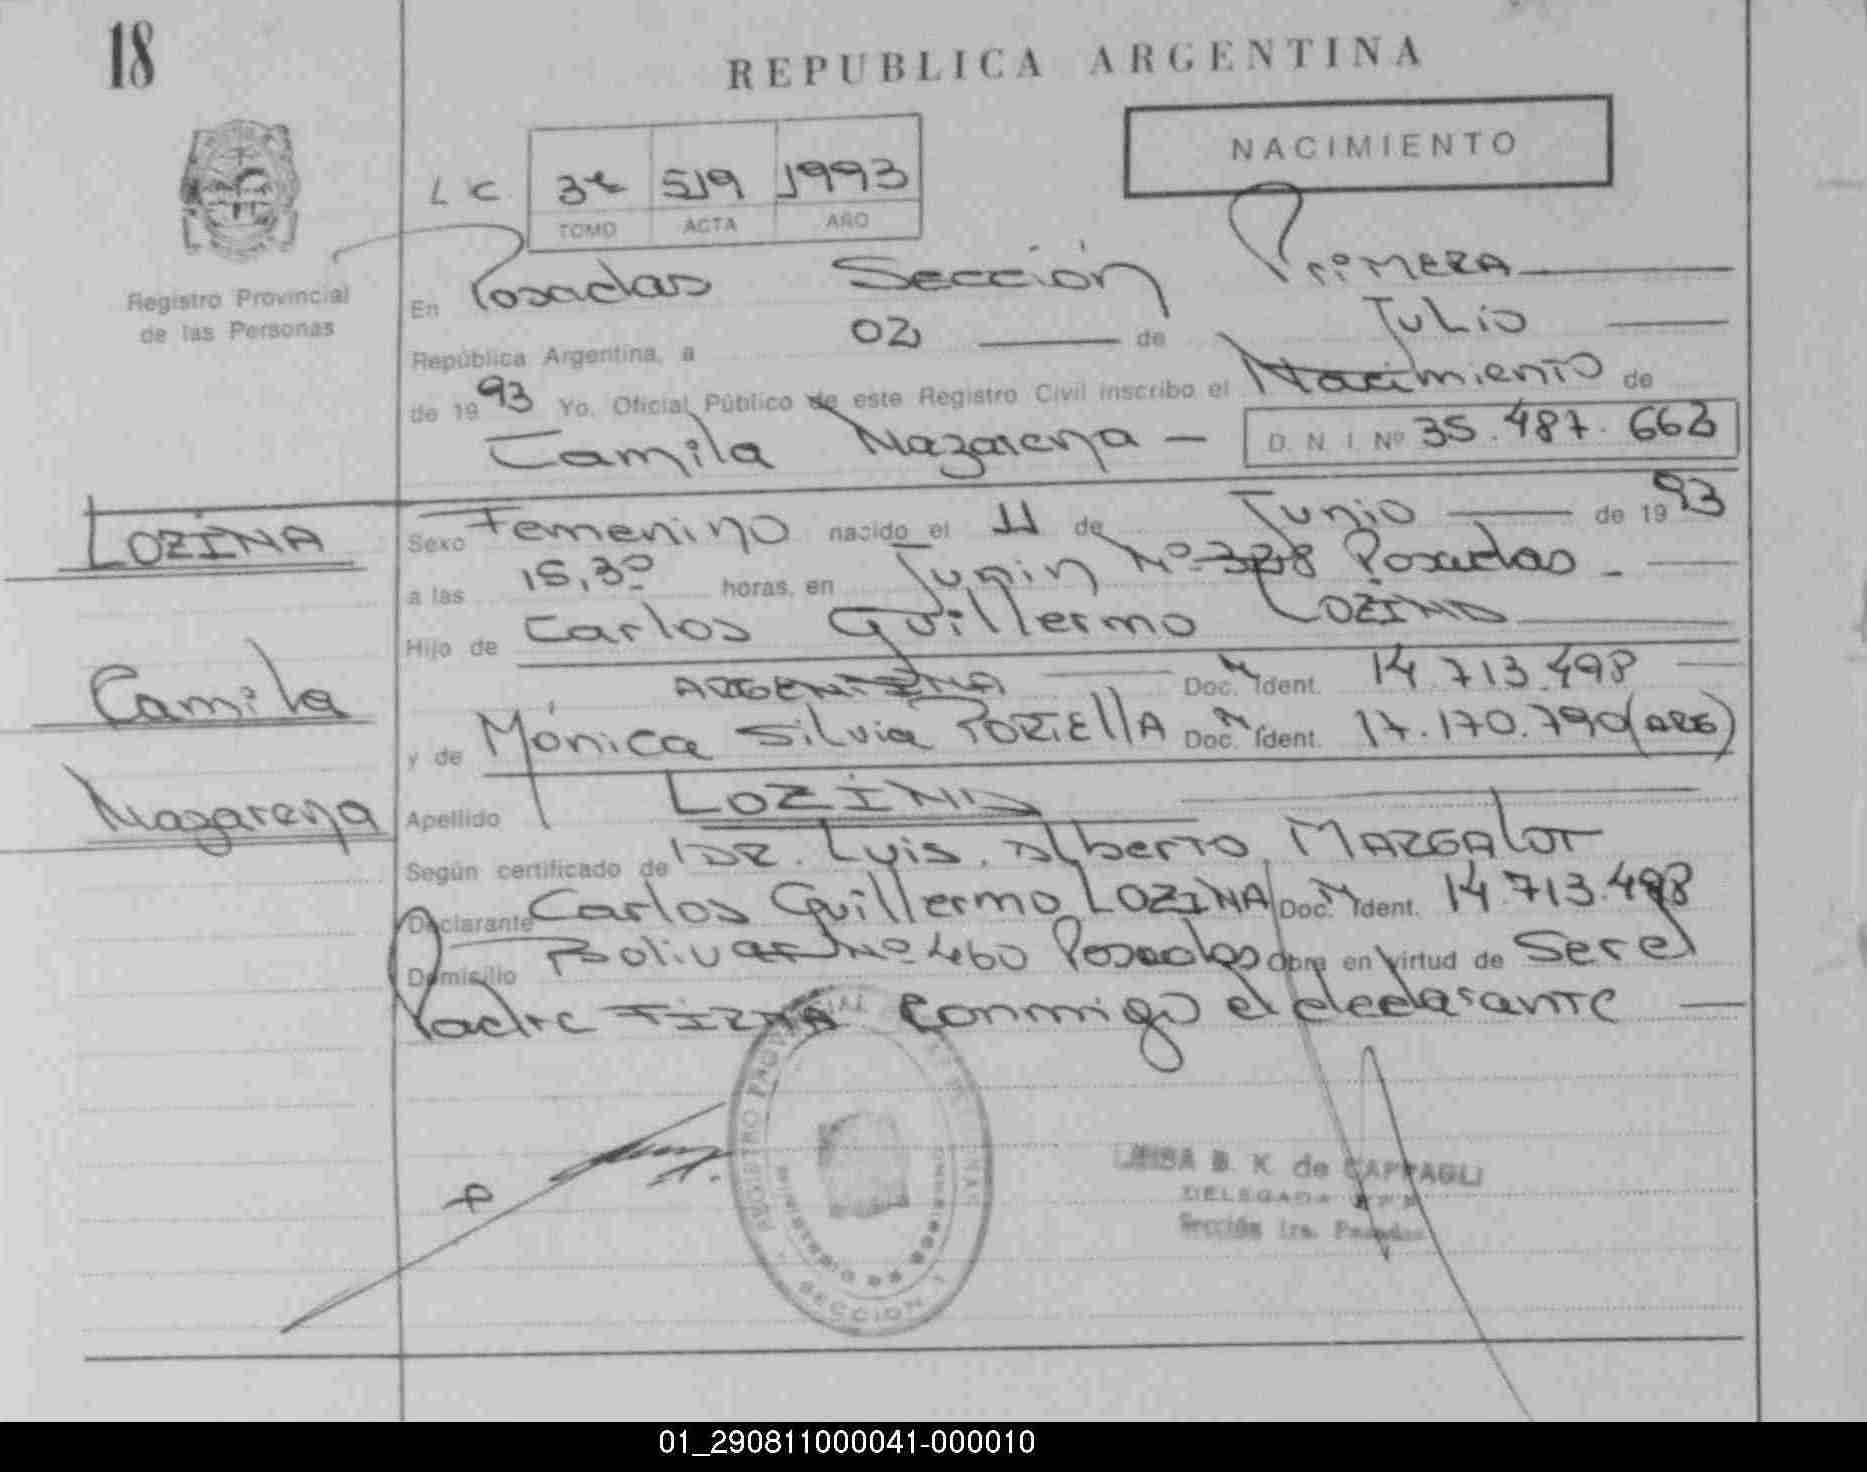 18
REPUBLICA ARGENTINA
NACIMIENTO
L C 3º 519 1993
TOMO ACTA AÑO
Registro Provincial
de las Personas
En Posadas Sección Primera
República Argentina, a 02 de Julio
de 1993 Yo, Oficial Público de este Registro Civil inscribo el Nacimiento de
Camila Nazarena - D. N. I. Nº 35.487.662
LOZINA
Camila
Nazarena
Sexo Femenino nacido el 11 de Junio de 1993
a las 15,30 horas, en Junin Nº Posadas -
Hijo de Carlos Guillermo LOZINA
ARGENTINA Doc. Ident. 14.713.498
y de Mónica Silvia PORTELLA Doc. Ident. 17.170.790 (ARG)
Apellido LOZINA
Según certificado de DR. Luis Alberto MARGALOT
Declarante Carlos Guillermo LOZINA Doc. Ident. 14.713.498
Domicilio Bolivar Nº 460 Posadas obra en virtud de Ser el
Padre FIRMA Conmigo el declarante
REGISTRO PROVINCIAL DE LAS PERSONAS
SECCION 1
LUISA B. K. de CAPPAGLI
DELEGADA
Sección 1ra. Posadas
01_290811000041-000010